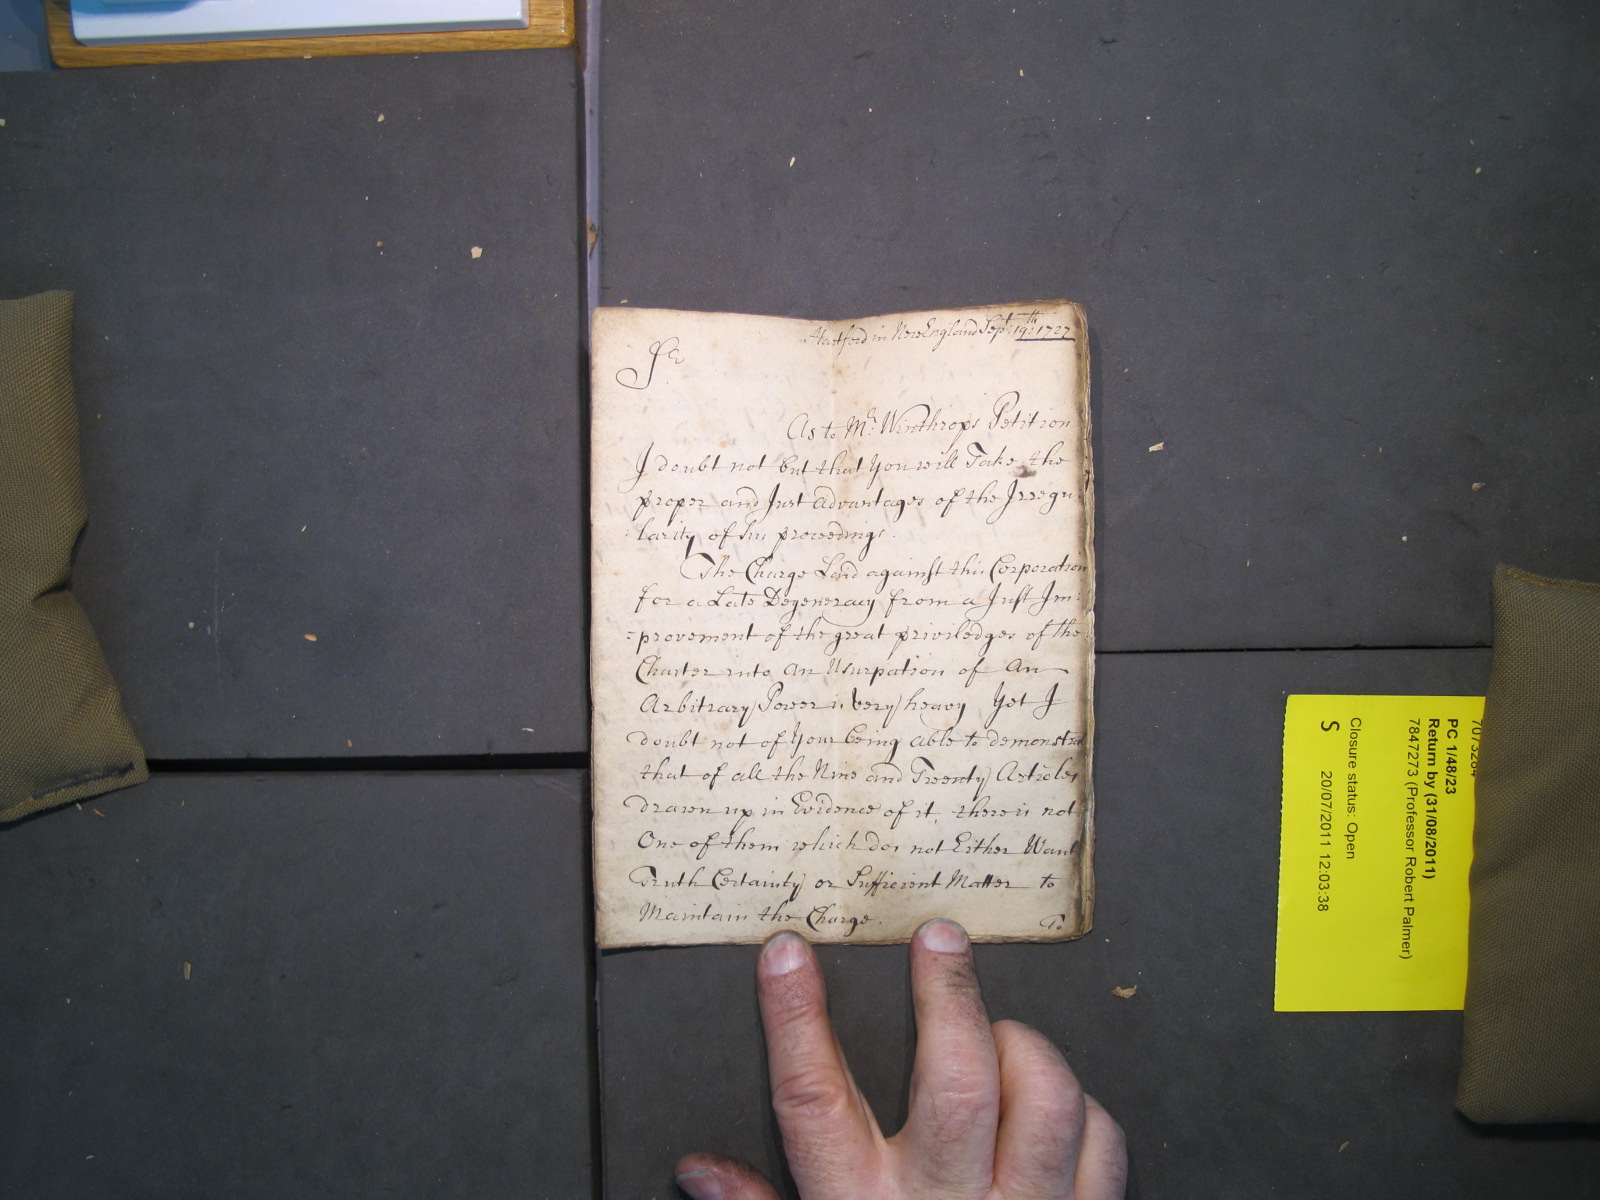 Hartford in New England Sept: 19th: 1727
Sr
As to Mr: Winthrops Petition
I doubt not but that you will Take the
proper and Just advantages of the Irregu:
:larity of his proceedings.
The Charge Laid against this Corporation
for a Late Degeneracy from a Just Im:
=provement of the great priviledges of the
Charter into an Usurpation of An
Arbitrary Power is very heavy Yet I
doubt not of Your being able to demonstrate
that of all the Nine and Twenty Articles
drawn up in Evidence of it, there is not
One of them which dos not Either Want
Truth Certainty or Sufficient Matter to
Maintain the Charge.
To
PC 1/48/23
Return by (31/08/2011)
7847273 (Professor Robert Palmer)
Closure status: Open
S 20/07/2011 12:03:38